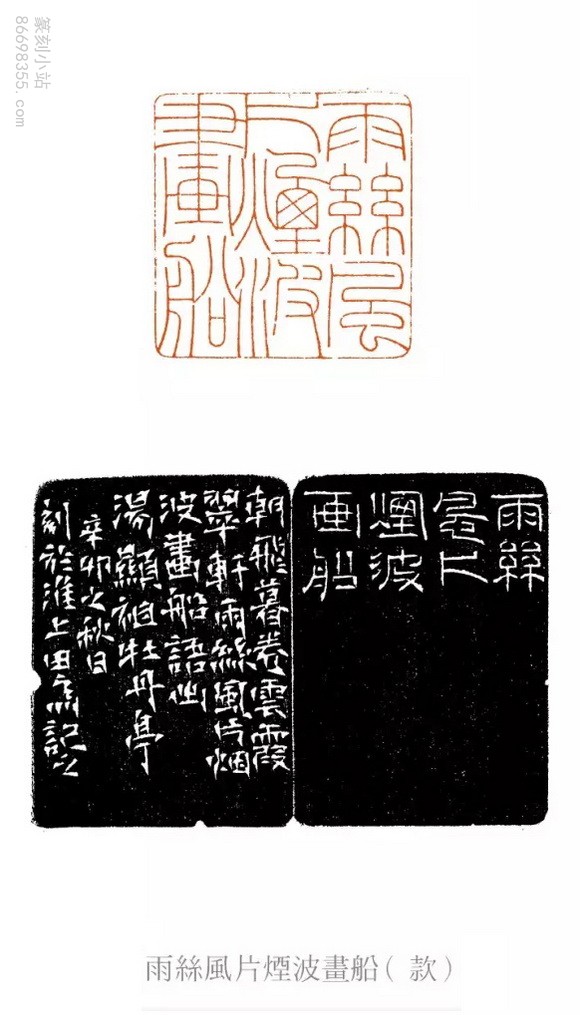 篆刻小站
86698355.com
雨絲風
片煙波
畫船
雨絲
風片
煙波
画船
朝飛暮卷雲霞
翠軒雨絲風片烟
波畫船語出
湯顯祖牡丹亭
辛卯之秋日
刻於淮上田魚記之
雨絲風片煙波畫船(款)